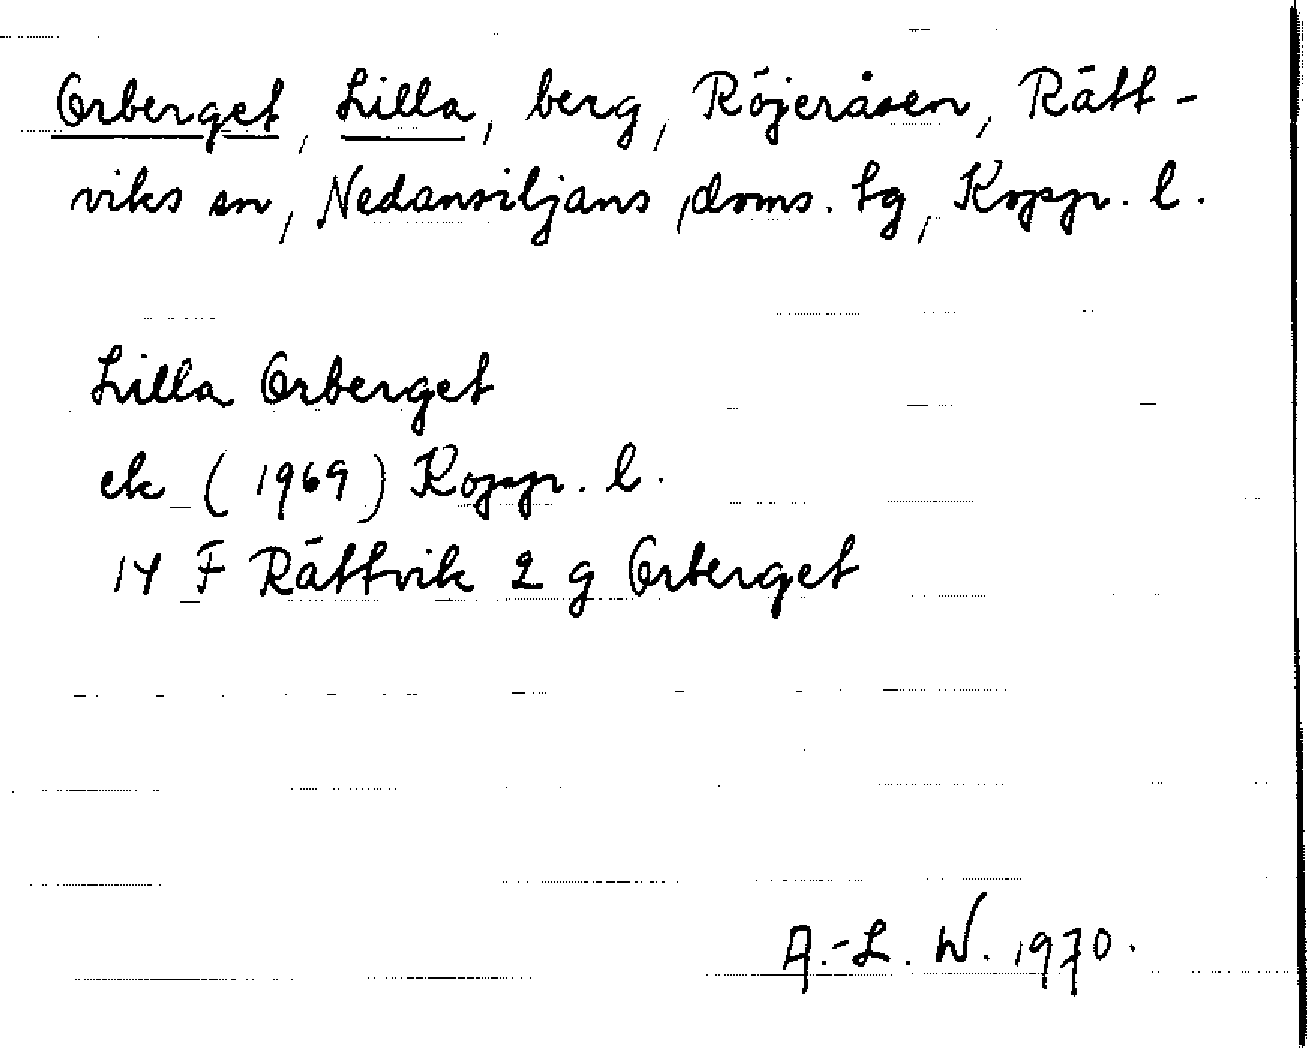 Orberget, Lilla, berg, Röjeråsen, Rätt-
viks sn, Nedansiljans doms. hg, Koppr. l.
Lilla Orberget
ek (1969) Koppr. l.
14 F Rättvik 2 g Orberget
A.-L. W. 1970.